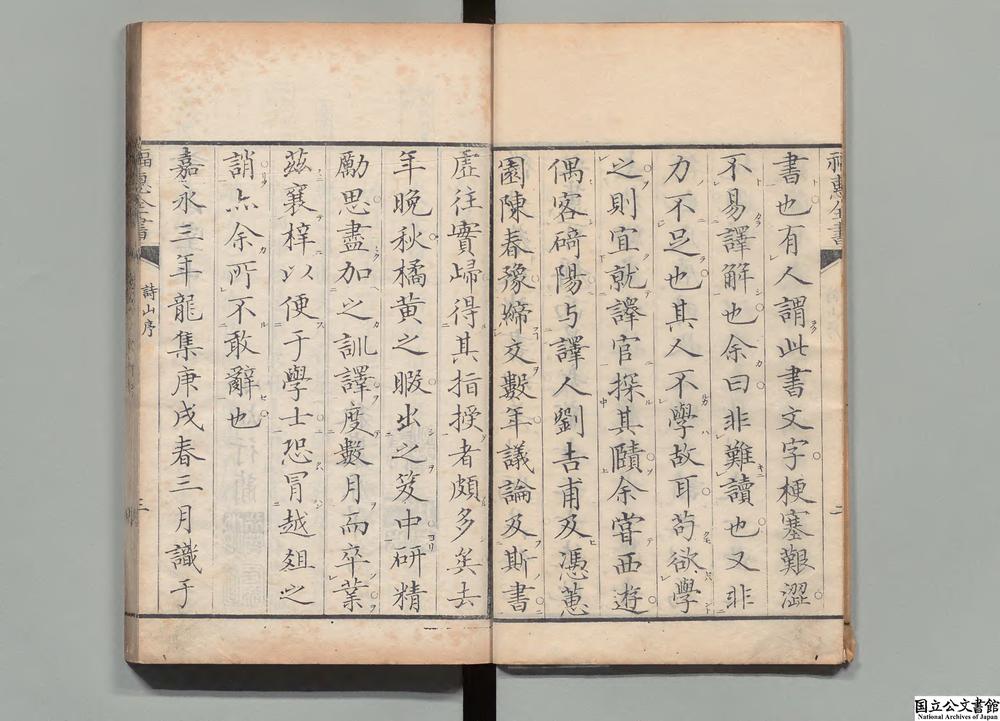 書也有人謂此書文字梗塞艱澀
不易譯解也余曰非難讀也又非
力不足也其人不學故耳苟欲學
之則宜就譯官探其賾余嘗西遊
偶客碕陽与譯人劉吉甫及馮蕙
園陳春豫締交數年議論及斯書
虛往實歸得其指授者頗多矣去
年晚秋橘黃之暇出之笈中研精
勵思盡加之訓譯度數月而卒業
茲襄梓以便于學士恐冒越爼之
誚亦余所不敢辭也
嘉永三年龍集庚戌春三月識于
福惠全書
詩山序
三
福惠全書
二
国立公文書館
National Archives of Japan